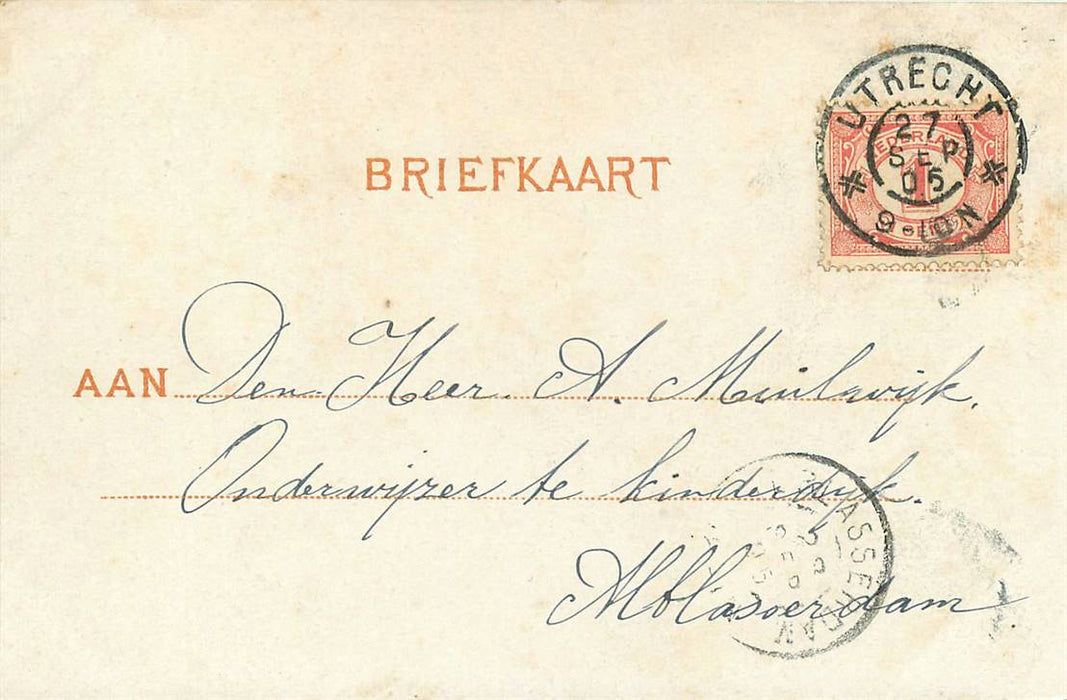 UTRECHT
27
SEP
05
9-10N
NEDERLAND
1
BRIEFKAART
AAN Den Heer. A. Muilwijk.
Onderwijzer te Kinderdyk.
Alblasserdam
ALBLASSERDAM
28
SEP
05